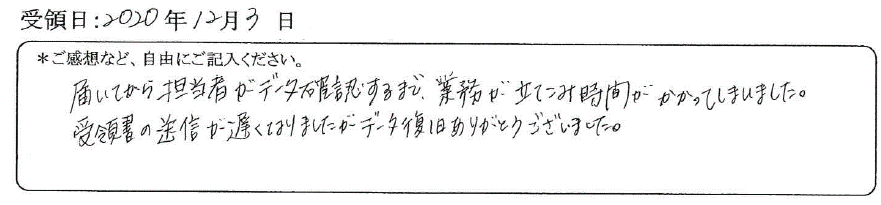 受領日:2020年12月3日
*ご感想など、自由にご記入ください。
届いてから担当者がデータ確認するまで、業務が立てこみ時間がかかってしまいました。
受領書の送信が遅くなりましたがデータ復旧ありがとうございました。